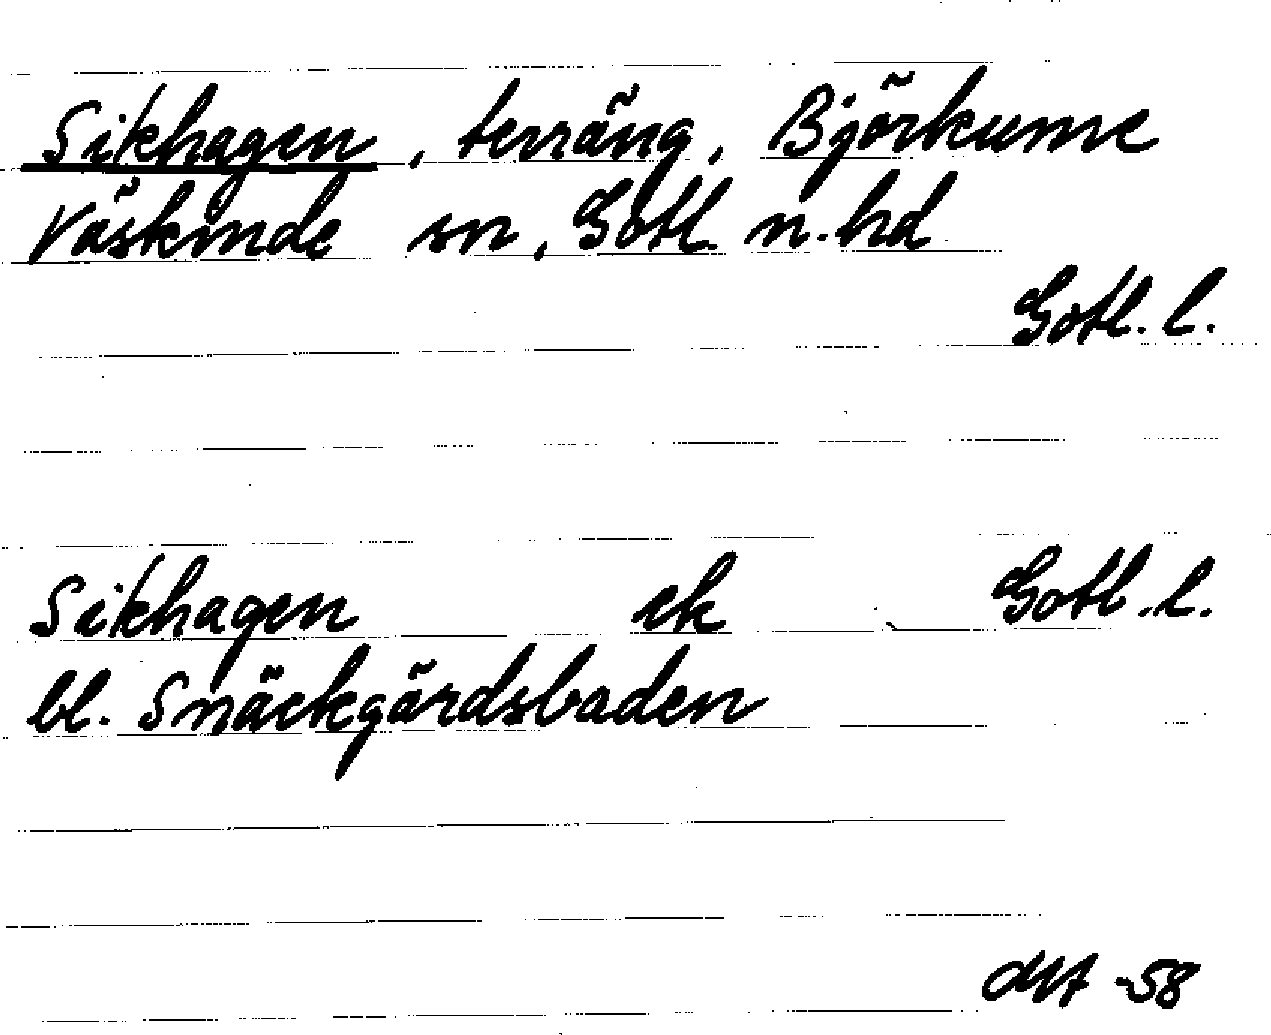 Sikhagen, terräng, Björkume
Väskinde sn, Gotl. n. hd
Gotl. l.
Sikhagen ek Gotl. l.
bl. Snäckgärdsbaden
-58